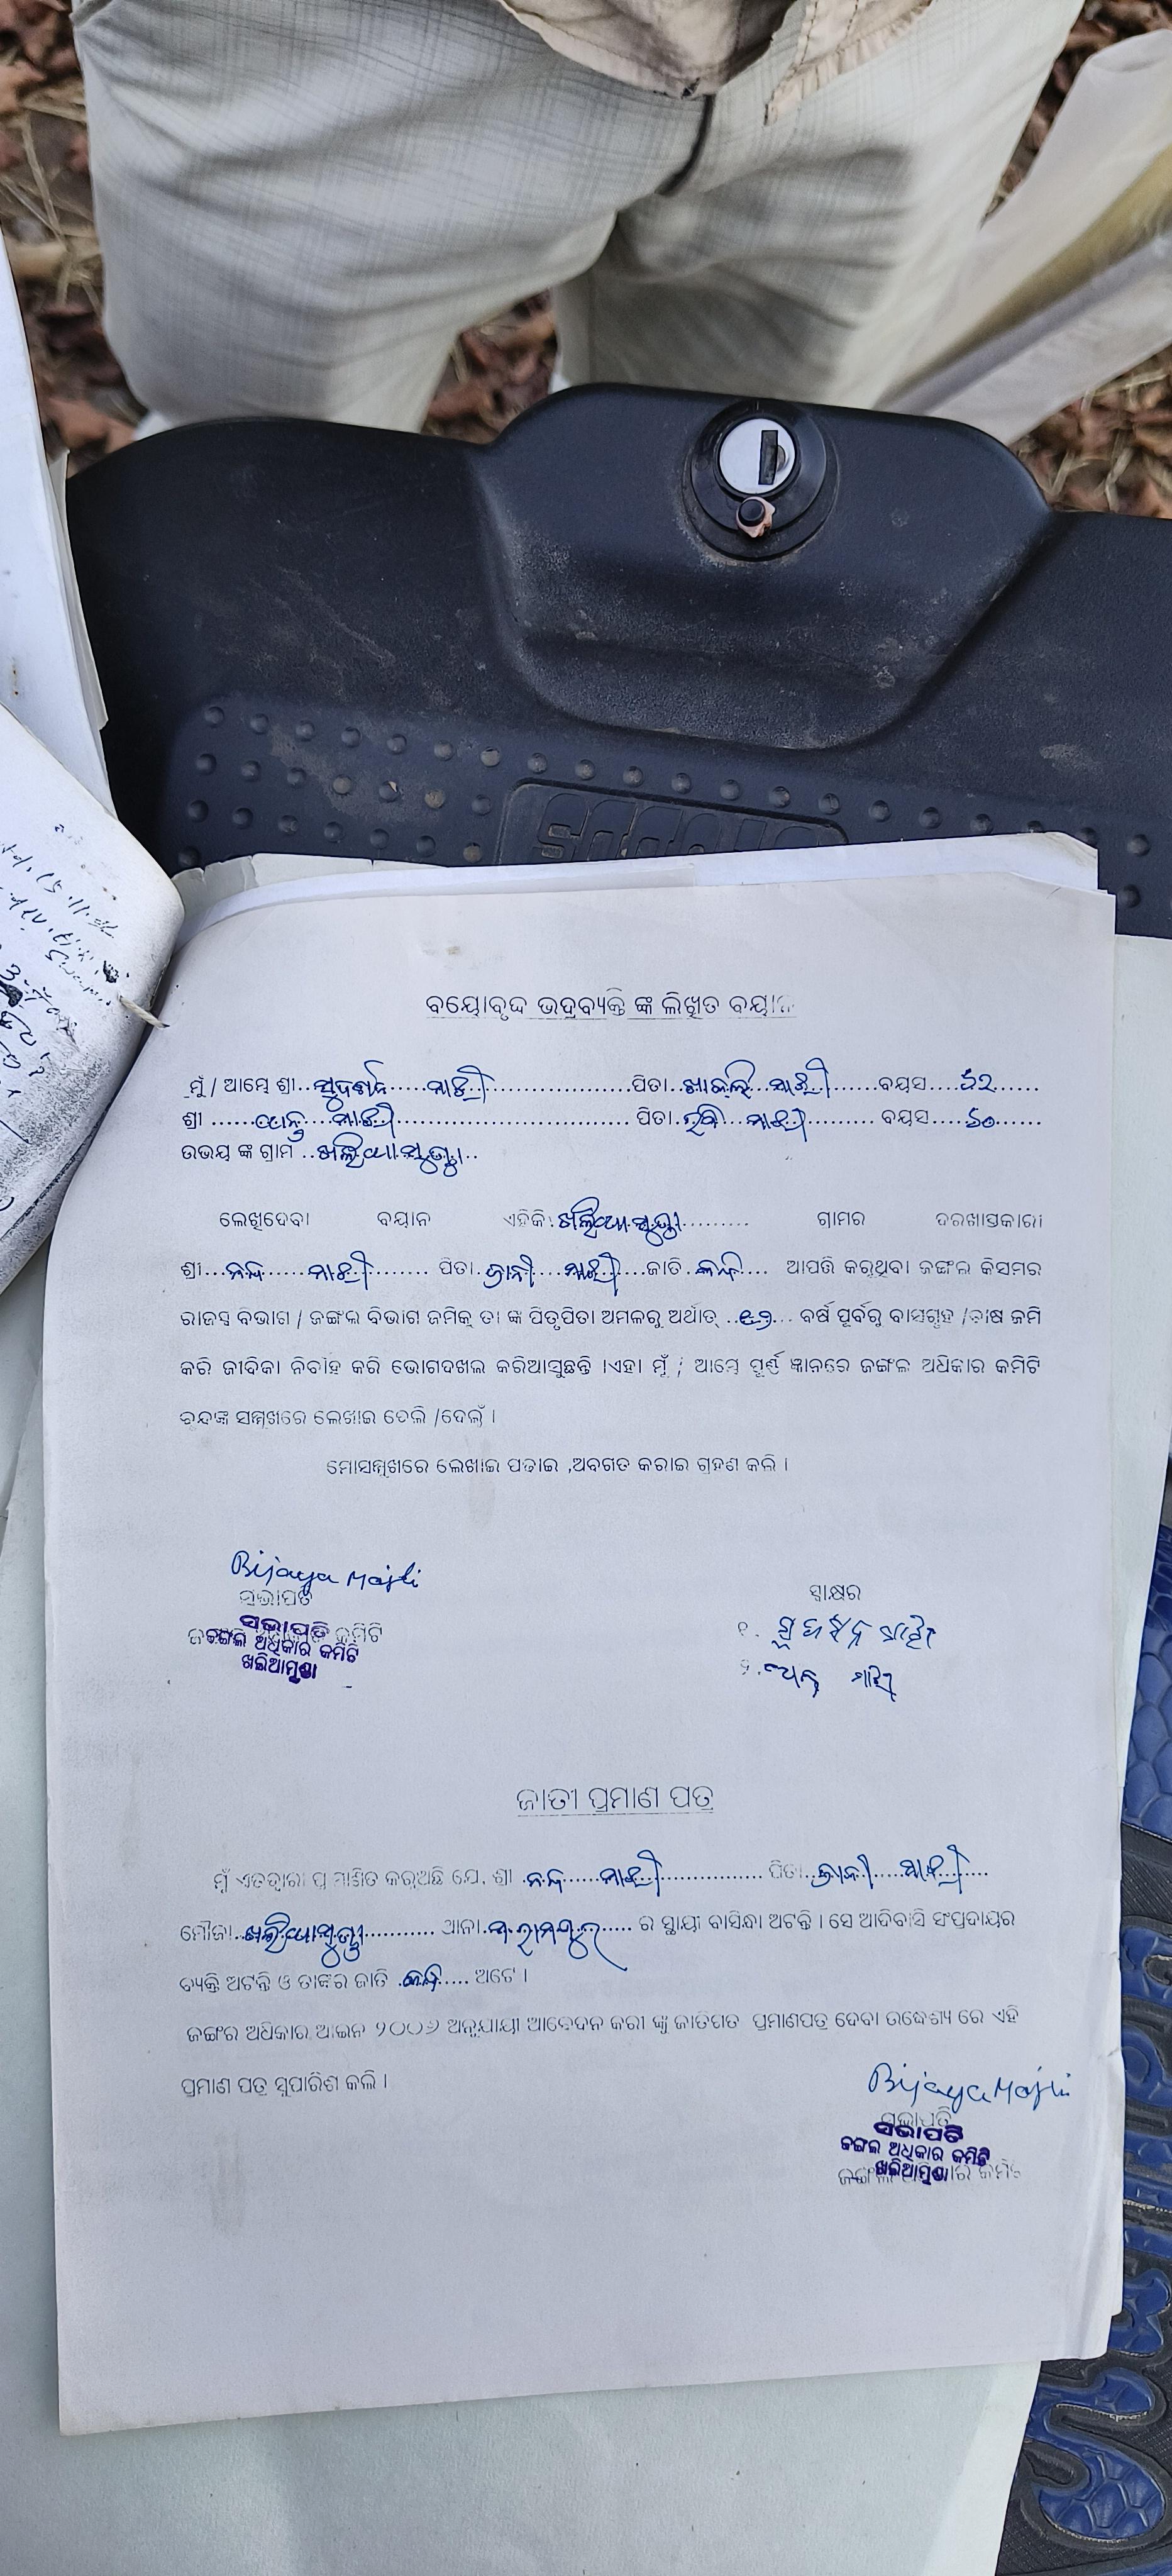 ବୟୋବୃଦ୍ଦ ଭଦ୍ରବ୍ୟକ୍ତି ଙ୍କ ଲିଖିତ ବୟାନ
ମୁଁ / ଆମ୍ଭେ ଶ୍ରୀ..ସୁଦର୍ଶନ.....ମାଝୀ....................ପିତା..ଖାଳଲି ମାଝୀ......ବୟସ....୬୨......
ଶ୍ରୀ ......ଧେନୁ...ମାଝୀ............................ ପିତା.ରବି...ମାଝୀ......... ବୟସ....୬୦......
ଉଭୟ ଙ୍କ ଗ୍ରାମ ..ଖଲିଆମୁଣ୍ଡା..
ଲେଖିଦେବା ବୟାନ ଏହିକି.ଖଲିଆମୁଣ୍ଡା......... ଗ୍ରାମର ଦରଖାସ୍ତକାରୀ
ଶ୍ରୀ...ନନ୍ଦ.....ମାଝୀ........ ପିତା..ଜାନୀ...ମାଝୀ...ଜାତି..କନ୍ଧ.... ଆପତି କରୁଥିବା ଜଙ୍ଗଲ କିସମର
ରାଜସ୍ୱ ବିଭାଗ / ଜଙ୍ଗଲ ବିଭାଗ ଜମିକୁ ତା ଙ୍କ ପିତୃପିତା ଅମଳରୁ ଅର୍ଥାତ୍ ..... ବର୍ଷ ପୂର୍ବରୁ ବାସଗୃହ /ଚାଷ ଜମି
କରି ଜୀବିକା ନିର୍ବାହ କରି ଭୋଗଦଖଲ କରିଆସୁଛନ୍ତି ।ଏହା ମୁଁ / ଆମ୍ଭେ ପୂର୍ଣ୍ଣ ଜ୍ଞାନରେ ଜଙ୍ଗଲ ଅଧିକାର କମିଟି
ବୃନ୍ଦଙ୍କ ସମ୍ମୁଖରେ ଲେଖାଇ ଦେଲି /ଦେଲୁଁ ।
ମୋସମ୍ମୁଖରେ ଲେଖାଇ ପଢାଇ ,ଅବଗତ କରାଇ ଗ୍ରହଣ କଲି ।
Bijaya Majhi
ସଭାପତି
ସଭାପତି
ଜଙ୍ଗଲ ଅଧିକାର କମିଟି
ଖଲିଆମୁଣ୍ଡା
ସ୍ୱାକ୍ଷର
୧. ସୁଦର୍ଶନ ମାଝି
୨. ଧେନୁ ମାଝି
ଜାତୀ ପ୍ରମାଣ ପତ୍ର
ମୁଁ ଏତଦ୍ୱାରା ପ୍ରମାଣିତ କରୁଅଛି ଯେ, ଶ୍ରୀ .ନନ୍ଦ.....ମାଝୀ.................ପିତା..ଜାନୀ...ମାଝୀ....
ମୌଜା..ଖଲିଆମୁଣ୍ଡା........... ଥାନା..ମ.ରାମପୁର..... ର ସ୍ଥାୟୀ ବାସିନ୍ଧା ଅଟନ୍ତି । ସେ ଆଦିବାସି ସଂପ୍ରଦାୟର
ବ୍ୟକ୍ତି ଅଟନ୍ତି ଓ ତାଙ୍କର ଜାତି .କନ୍ଧ.... ଅଟେ ।
ଜଙ୍ଗର ଅଧିକାର ଆଇନ ୨୦୦୬ ଅନୁଯାୟୀ ଆବେଦନ କରୀ ଙ୍କୁ ଜାତିଗତ ପ୍ରମାଣପତ୍ର ଦେବା ଉଦ୍ଧେଶ୍ୟ ରେ ଏହି
ପ୍ରମାଣ ପତ୍ର ସୁପାରିଶ କଲି ।
Bijaya Majhi
ସଭାପତି
ସଭାପତି
ଜଙ୍ଗଲ ଅଧିକାର କମିଟି
ଖଲିଆମୁଣ୍ଡା